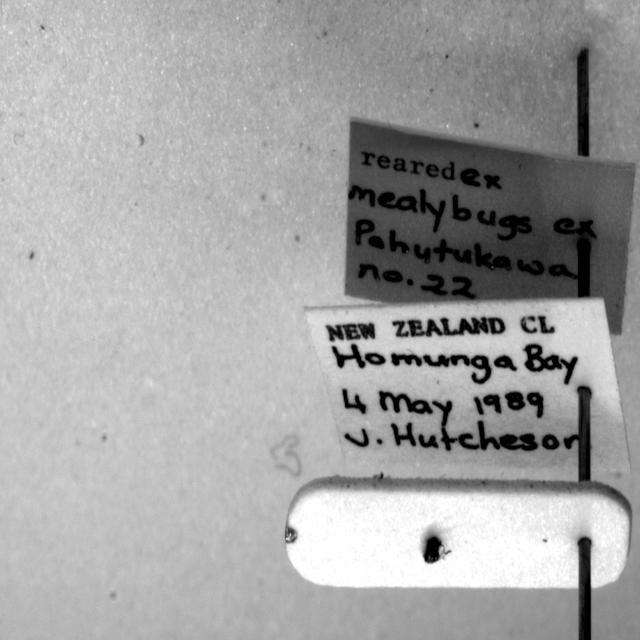 reared ex
mealybugs ex
Pohutukawa
no. 22
NEW ZEALAND CL
Homunga Bay
4 May 1989
J. Hutcheson